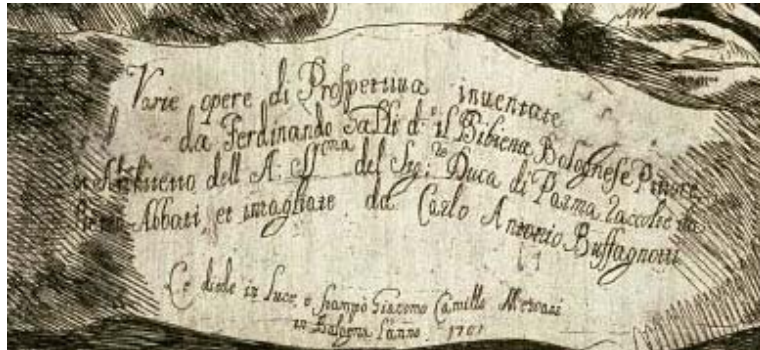 Varie opere di Prospettiua inuentate
da Ferdinando Galli d.º il Bibiena Bolognese Pittore,
Architetto dell A. S.ma del Sig.re Duca di Parma Raccolte da
Abbati, et intagliate da Carlo Antonio Buffagnotti
Le diede in Luce, e Stampò Giacomo Camillo Mercati
in Bologna l'anno 1701